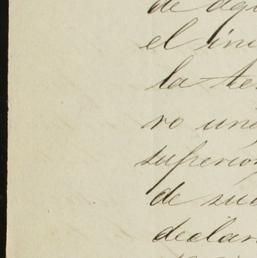 de aqu
el ini
la te
ro un
superior
de su
declar